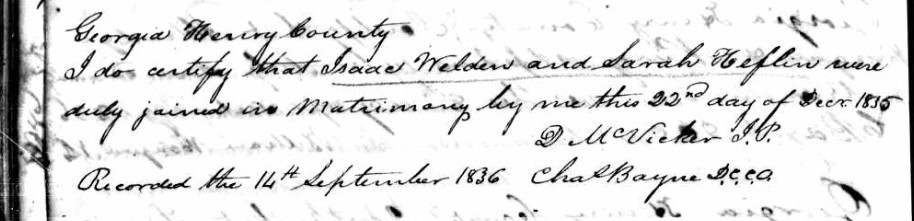 Georgia Henry County
I do certify that Isaac Welden and Sarah Heflin were
duly joined in Matrimony by me this 22nd day of Decr. 1835
D McVicker J.P.
Recorded the 14th September 1836 Chas Bayne D.C.C.O.